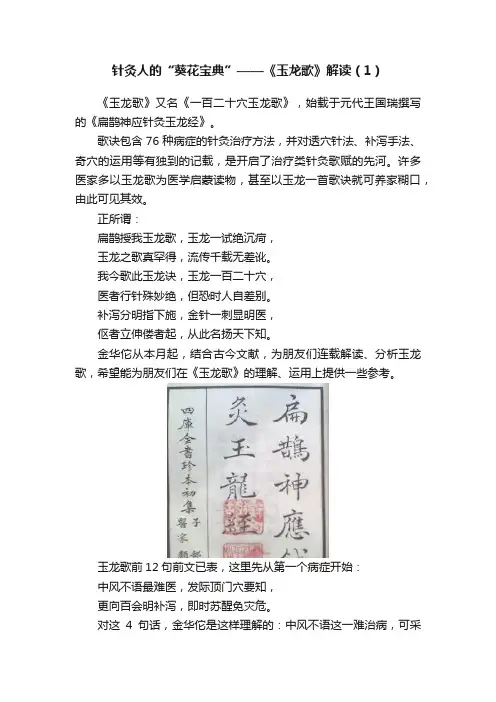 针灸人的“葵花宝典”——《玉龙歌》解读（1）
《玉龙歌》又名《一百二十六穴玉龙歌》，始载于元代王国瑞撰写
的《扁鹊神应针灸玉龙经》。
歌诀包含76种病症的针灸治疗方法，并对透穴针法、补泻手法、
奇穴的运用等有独到的记载，是开启了治疗类针灸歌赋的先河。许多
医家多以玉龙歌为医学启蒙读物，甚至以玉龙一首歌诀就可养家糊口，
由此可见其效。
正所谓：
扁鹊授我玉龙歌，玉龙一试绝沉疴，
玉龙之歌真罕得，流传千载无差讹。
我今歌此玉龙诀，玉龙一百二十穴，
医者行针殊妙绝，但恐时人自差别。
补泻分明指下施，金针一刺显明医，
伛者立伸偻者起，从此名扬天下知。
金华佗从本月起，结合古今文献，为朋友们连载解读、分析玉龙
歌，希望能为朋友们在《玉龙歌》的理解、运用上提供一些参考。
扁鵲神應
灸玉龍經
四庫全書珍本初集
子部
醫家類
玉龙歌前12句前文已表，这里先从第一个病症开始：
中风不语最难医，发际顶门穴要知，
更向百会明补泻，即时苏醒免灾危。
对这4句话，金华佗是这样理解的：中风不语这一难治病，可采